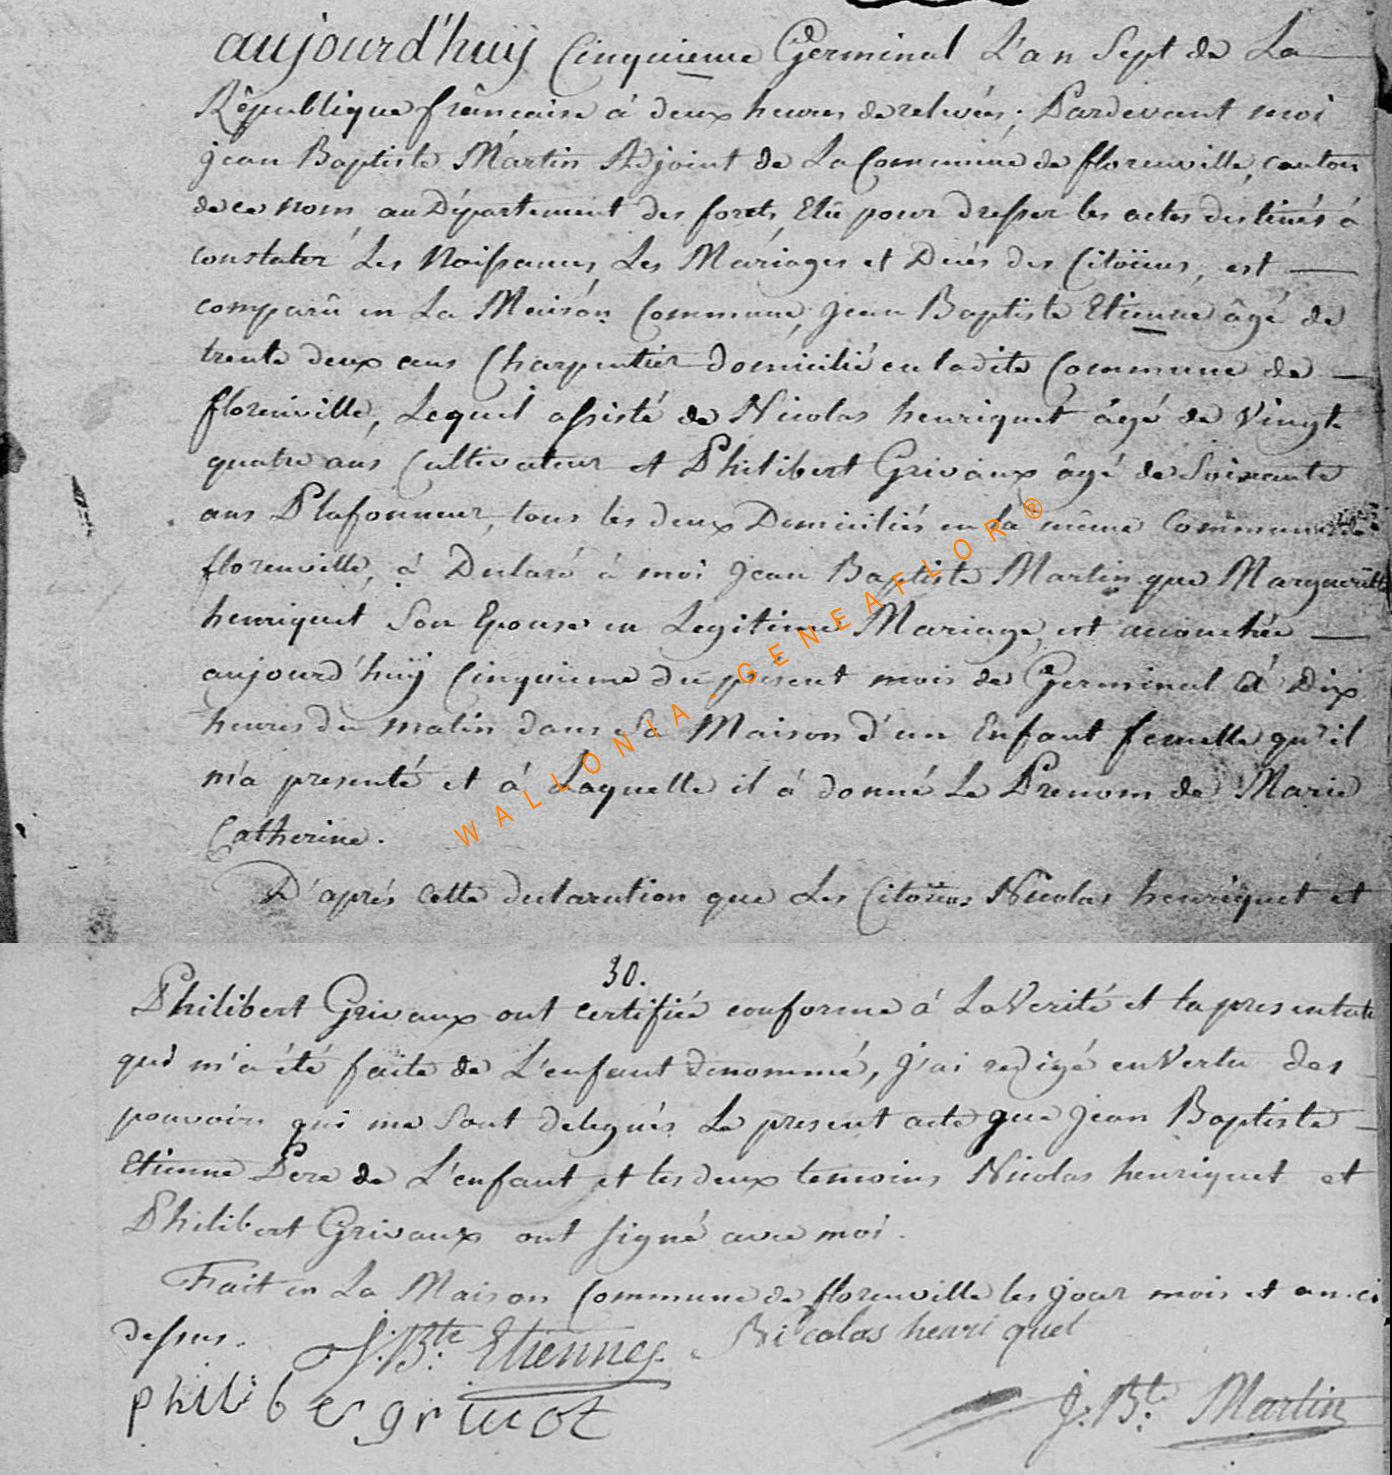 aujourd'huÿ Cinquieme Germinal L'an Sept de La
Rêpublique frâncaise à deux heures de relevées; Pardevant moi
jean Baptiste Mártin Adjoint de La Commune de florenville, canton
de ce nom au Département des forets, Elû pour dresser les actes destinés à
constater Les Naissances, Les Máriages et Décés des Citoÿens, est
comparû en La Maison Commune, jean Baptiste Etienne âgé de
trente deux ans Charpentier domicilié en ladite Commune de
florenville, Lequel assisté de Nicolas henriquet âgé de Vingt
quatre ans Cultivateur et Philibert Grivaux âgé de Soixante
ans Plafonneur, tous les deux Domiciliés en la même Commune de
florenville, à Declaré à moi Jean Baptiste Martin que Margueritte
henriquet Son Epouse en Legitime Mariage, est accouchée
aujourd'huÿ Cinquieme du present mois de Germinal à Dix
heures du matin dans Sa Maison d'un Enfant femelle qu'il
m'a presenté et à Laquelle il à donné Le Prenom de Marie
Catherine.
D'aprés cette declaration que Les Citoÿens Nicolas henriquet et
30.
Philibert Grivaux ont certifiée conforme à La Verité et la presentate
qui m'a été faite de L'enfant denommé, j'ai redigé en Vertu des
pouvoirs qui me Sont delegués Le present acte que jean Baptiste
Etienne Pere de L'enfant et les deux temoins Nicolas henriquet et
Philibert Grivaux ont signé avec moi.
Fait en La Maison Commune de florenville les jour mois et an ci
dessus.
J: Bte: Etienne
Nicolas henri quet
philibergriuot
J: Bt: Martin
WALLONIA - GENEAFLOR ®